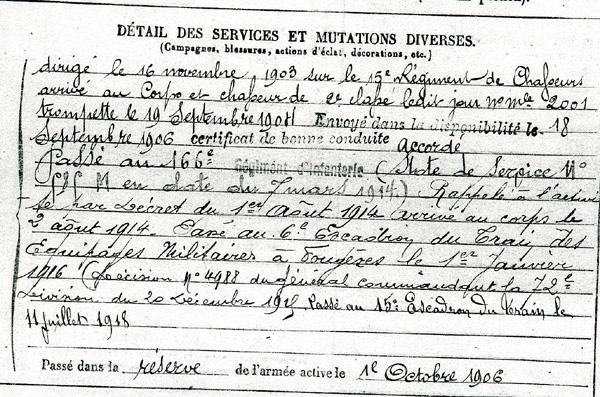 DÉTAIL DES SERVICES ET MUTATIONS DIVERSES.
(Campagnes, blessures, actions d'éclat, décorations, etc.)
dirigé le 16 novembre 1903 sur le 15e Régiment de Chasseurs
arrivé au Corps et chasseur de 2e classe ledit jour no mle 2001
trompette le 19 Septembre 1904 Envoyé dans la disponibilité le 18
Septembre 1906 certificat de bonne conduite accordé
Passé au 166e Régiment d'Infanterie (Note de Service No
M en date du 7 mars 1914). Rappelé à l'activi
té par Décret du 1er Août 1914 arrivé au corps le
2 août 1914. Passé au 6e Escadron du Train des
Equipages Militaires à Fougères le 1er Janvier
1916 (Décision No 4988 du général commandant la 72e
Division du 20 Décembre 1915 Passé au 15e Escadron du train le
11 juillet 1918
Passé dans la réserve de l'armée active le 1e Octobre 1906